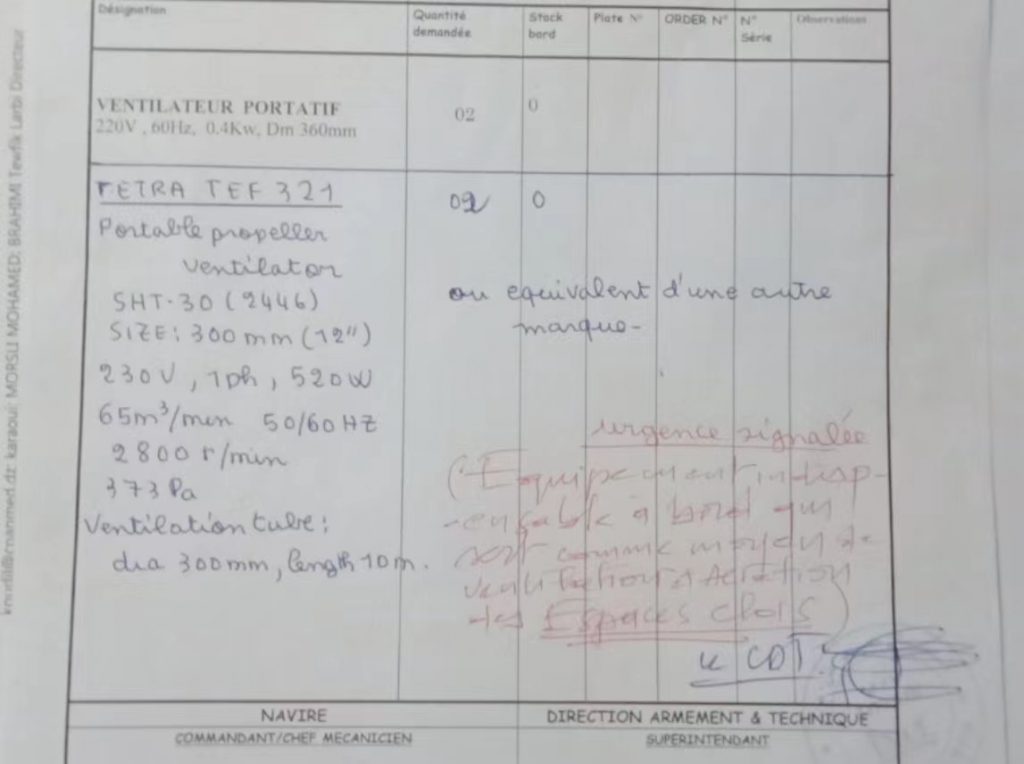 Désignation Quantité demandée Stock bord Piste N° ORDER N° N° Série Observations
VENTILATEUR PORTATIF 02 0
220V , 60Hz, 0.4Kw, Dm 360mm
TETRA TEF 321 02 0
Portable propeller
ventilator
SHT-30 (2446)
ou equivalent d'une autre
marque-
SIZE: 300 mm (12")
230V , 1ph , 520W
65m³/min 50/60 HZ
2800 r/min
373 Pa
Ventilation tube:
dia 300mm, length 10m.
urgence signalée
(Equipement indisp-
-ensable à bord qui
sert comme moyen de
ventilation & Aération
des Espaces clos)
Le CDT
NAVIRE DIRECTION ARMEMENT & TECHNIQUE
COMMANDANT/CHEF MECANICIEN SUPERINTENDANT
karaoui; MORSLI MOHAMED; BRAHIMI Tewfik Larbi Directeur